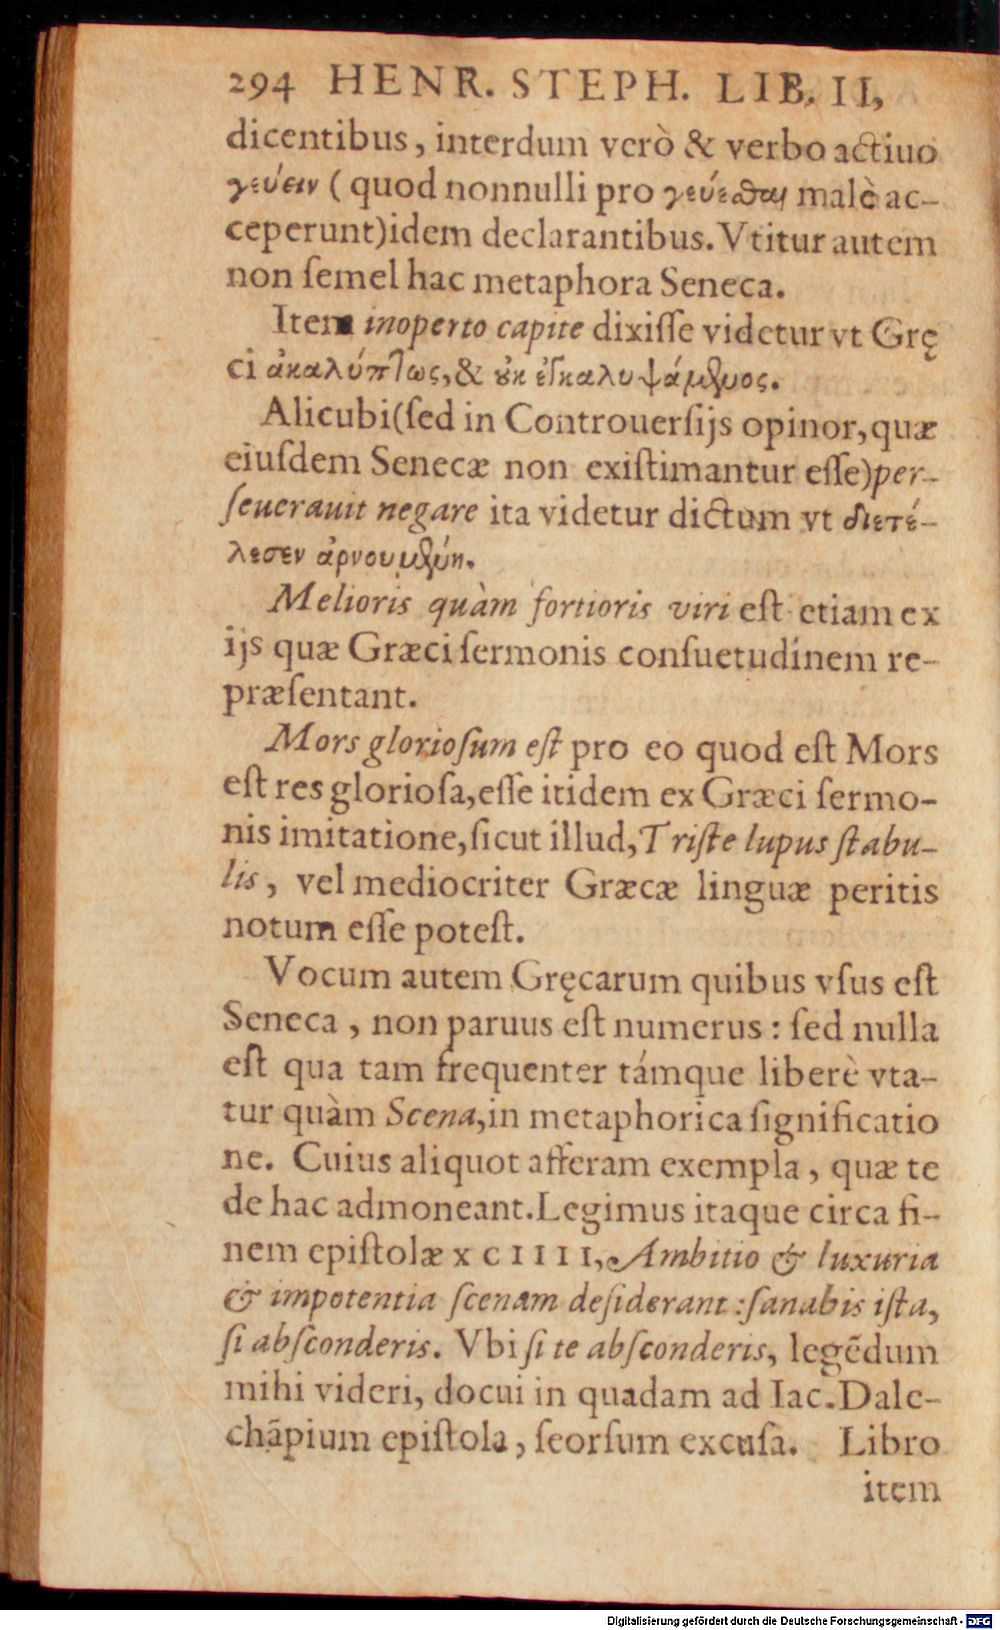 294 HENR. STEPH. LIB. II,
dicentibus, interdum verò & verbo actiuo
γεύειν ( quod nonnulli pro γεύεσθαι malè ac-
ceperunt)idem declarantibus. Vtitur autem
non ſemel hac metaphora Seneca.
Item inoperto capite dixiſſe videtur vt Grę
ci ἀκαλύπτως, & ȣ̓κ ἐγκαλυψάμενος.
Alicubi(ſed in Controuerſijs opinor, quæ
eiuſdem Senecæ non exiſtimantur eſſe)per-
ſeuerauit negare ita videtur dictum vt διετέ-
λεσεν ἀρνουμένη.
Melioris quàm fortioris viri est etiam ex
ijs quæ Græci ſermonis conſuetudinem re-
præſentant.
Mors glorioſum eſt pro eo quod eſt Mors
eſt res glorioſa, eſſe itidem ex Græci ſermo-
nis imitatione, ſicut illud, Triſte lupus ſtabu-
lis, vel mediocriter Græcæ linguæ peritis
notum eſſe poteſt.
Vocum autem Gręcarum quibus vſus eſt
Seneca, non paruus eſt numerus : ſed nulla
eſt qua tam frequenter támque liberè vta-
tur quàm Scena, in metaphorica ſignificatio
ne. Cuius aliquot afferam exempla, quæ te
de hac admoneant. Legimus itaque circa fi-
nem epiſtolæ XCIIII, Ambitio & luxuria
& impotentia ſcenam deſiderant : ſanabis iſta,
ſi abſconderis. Vbi ſi te abſconderis, legēdum
mihi videri, docui in quadam ad Iac. Dale-
chāpium epiſtola, ſeorſum excuſa. Libro
item
Digitalisierung gefördert durch die Deutsche Forschungsgemeinschaft - DFG